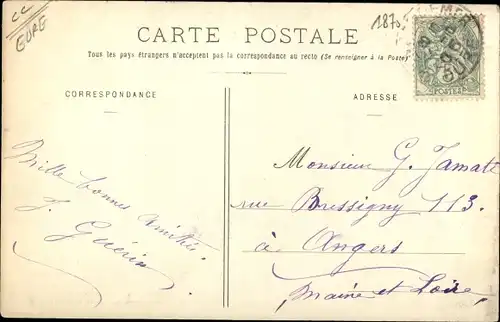 CC
EURE
1870
CARTE POSTALE
Tous les pays étrangers n'acceptent pas la correspondance au recto (Se renseigner à la Poste)
CORRESPONDANCE
ADRESSE
Mille bonnes amitiés
J. Guérin
Monsieur G. Jamate
rue Bressigny 113.
à Angers
Maine et Loire
POSTES
EURE